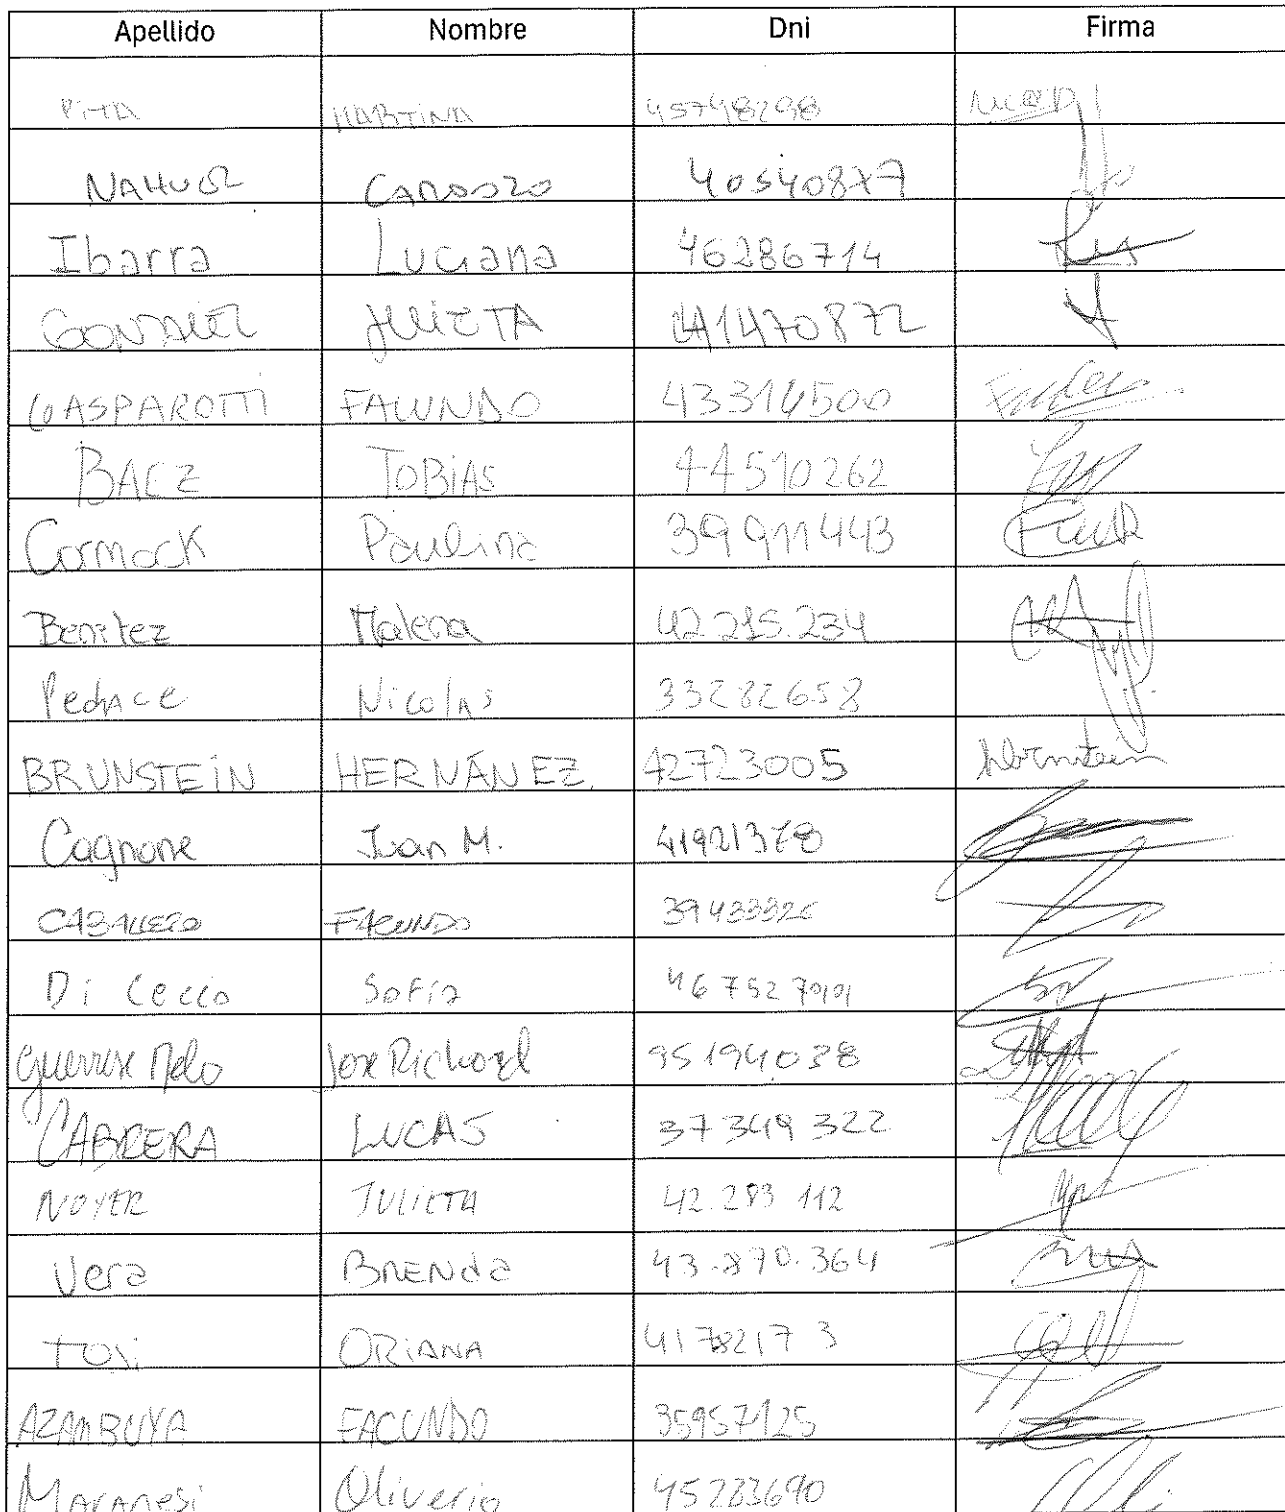 Apellido Nombre Dni Firma
PITA MARTINA 45748298
NAHUEL CARDOZO 40540877
Ibarra Luciana 46286714
GONZALEZ JULIETA 41470872
GASPAROTTI FACUNDO 43316500
BAEZ TOBIAS 44510262
Cormack Paulina 39911443
Benitez Malena 42.215.234
Pedace Nicolas 33282658
BRUNSTEIN HERNÁNEZ. 42723005
Cagnone Juan M. 41921378
CABALLERO FACUNDO
Di Cecco Sofia 46752799
Jose Richard 95194038
CABRERA LUCAS 37349322
NOYER JULIETA 42.283 112
Vera BRENda 43.870.364
TOSi ORIANA 41782173
AZAMBUYA FACUNDO 35957125
Maranesi Oliverio 45283690